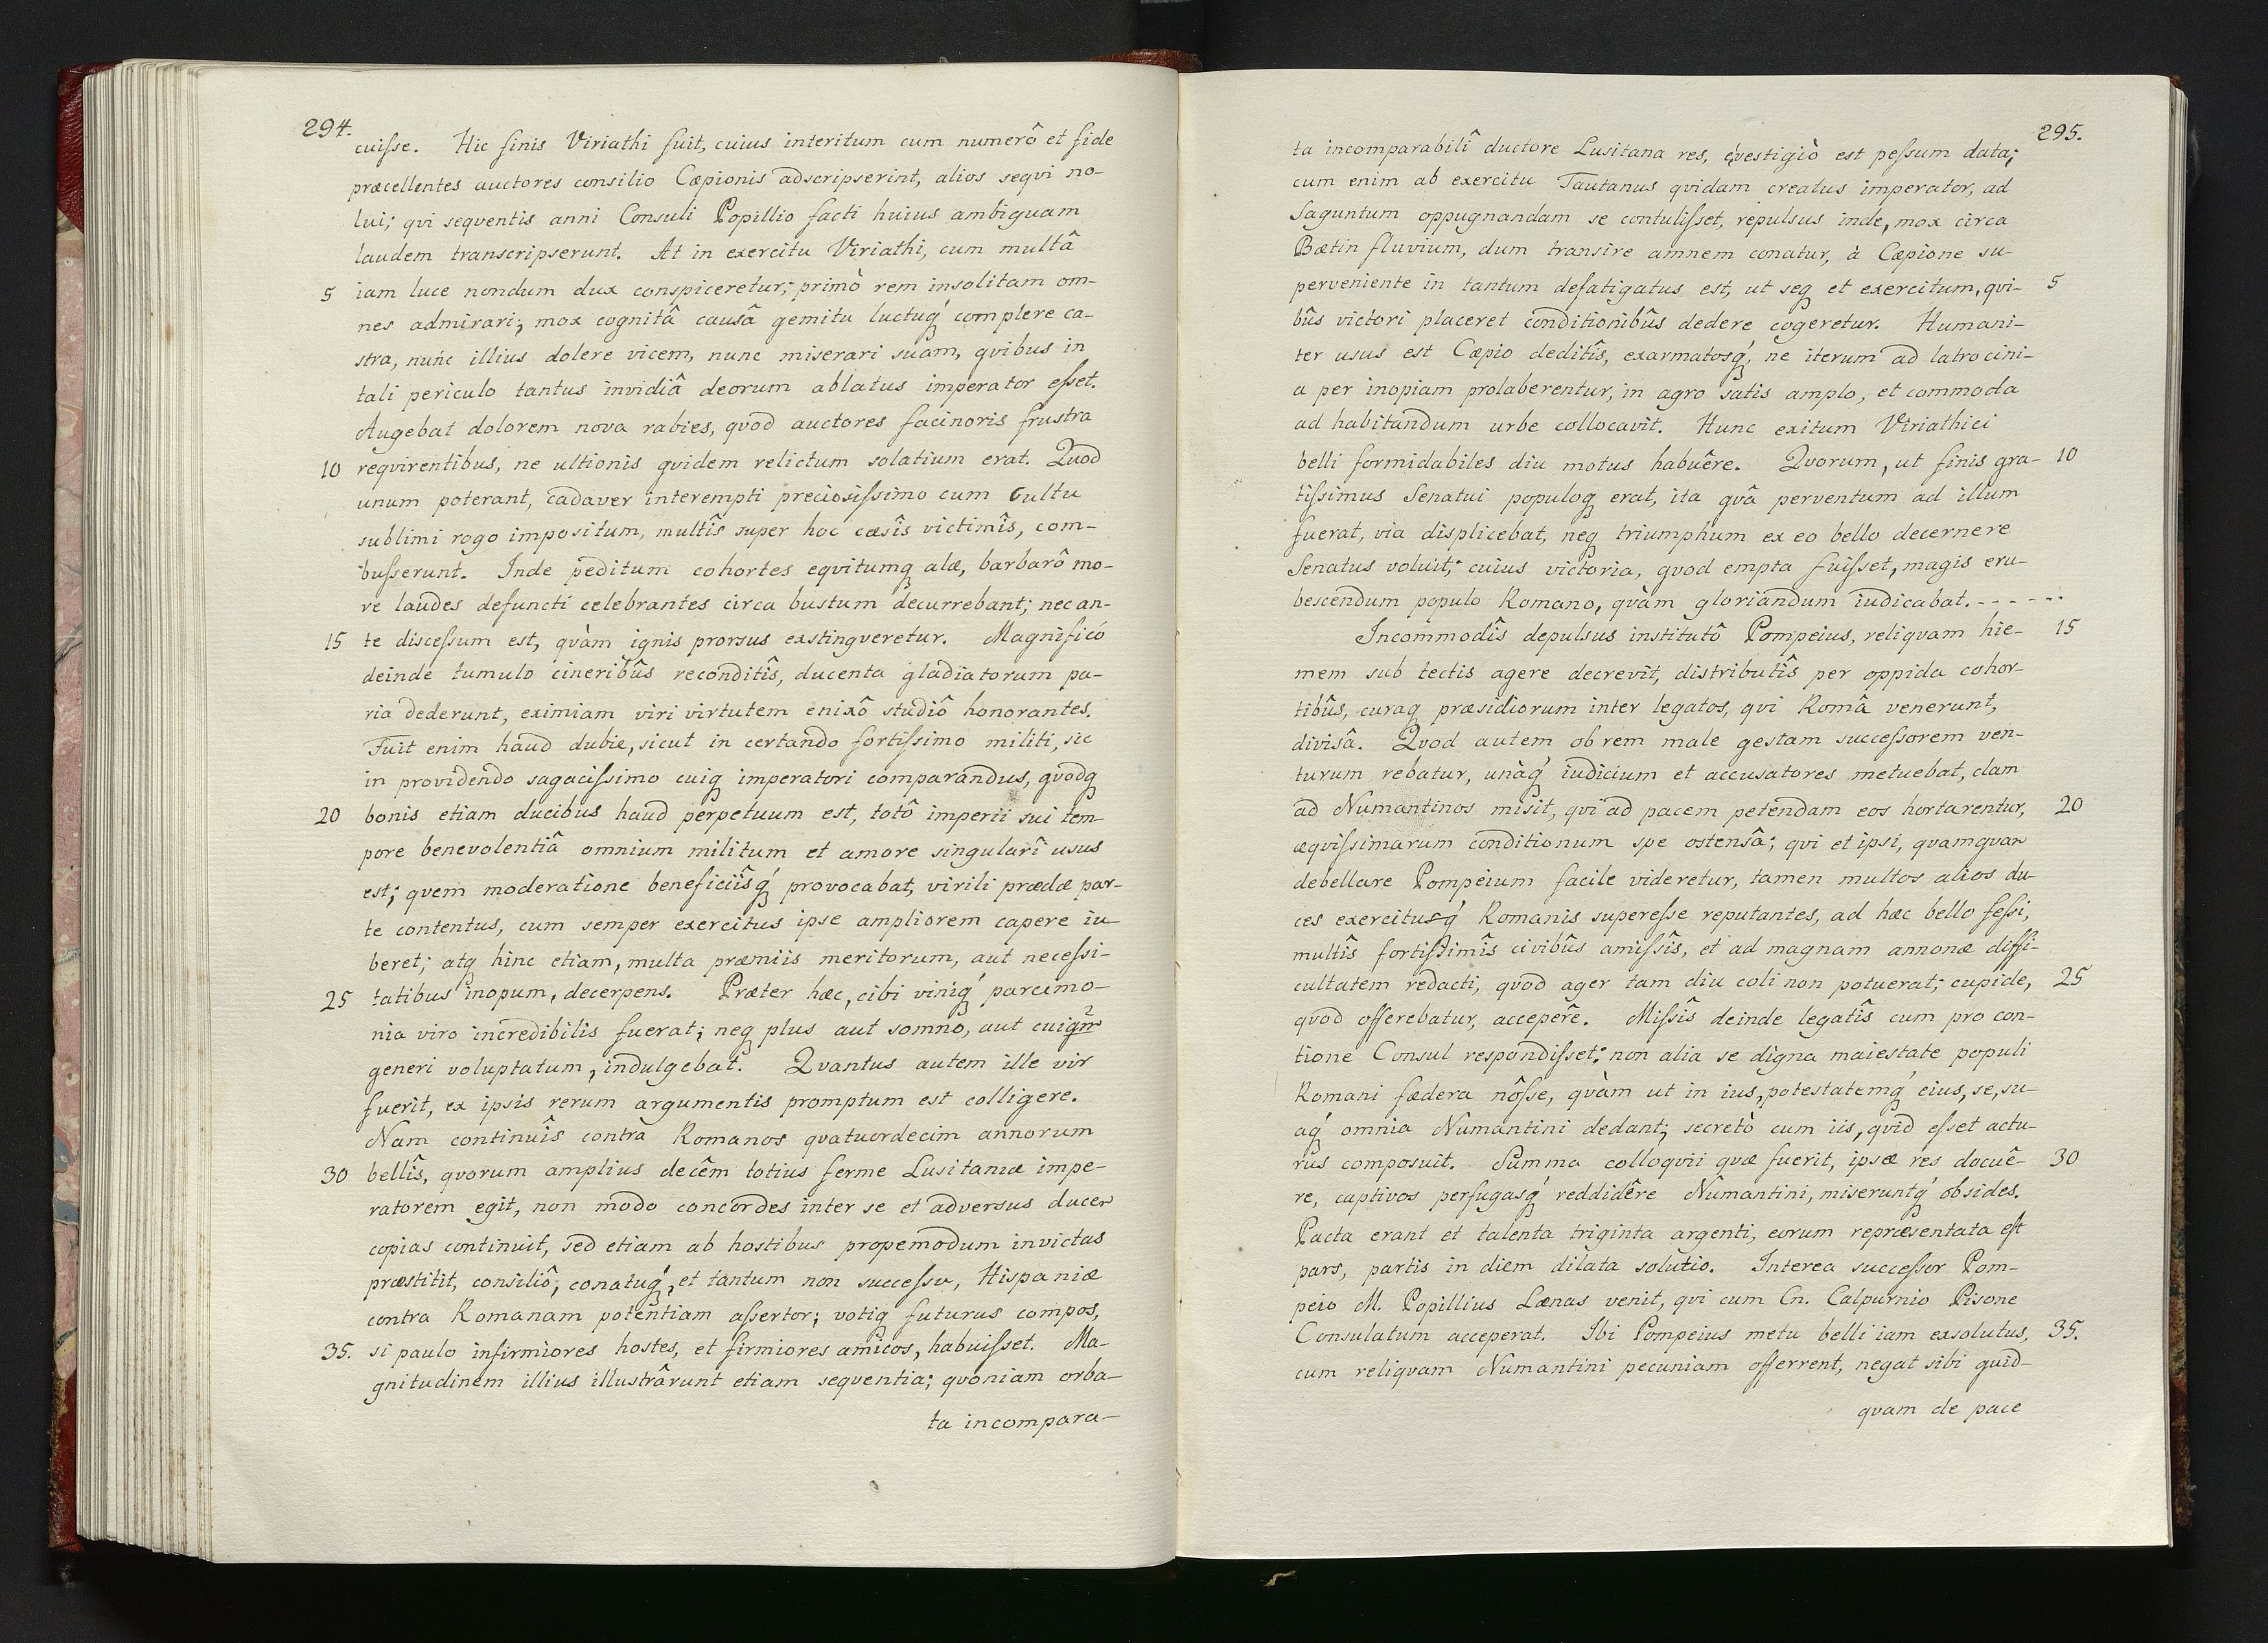 294.
cuiſse. Hic finis Viriathi fuit, cuius interitum cum numerô et fide
præcellentes auctores consilio Cæpionis adscripserint, alios seqvi no-
lui; qvi seqventis anni Consuli Popillio facti huius ambiguam
laudem transcripserunt. At in exercitu Viriathi, cum multâ
5 iam luce nondum dux conspiceretur; primò rem insolitam om-
nes admirari; mox cognitâ causâ gemitu luctuq́ complere ca-
stra, nunc illius dolere vicem, nunc miserari suam, qvibus in
tali periculo tantus invidiâ deorum ablatus imperator eſset.
Augebat dolorem nova rabies, qvod auctores facinoris frustra
10 reqvirentibus, ne ultionis qvidem relictum solatium erat. Quod
unum poterant, cadaver interempti preciosiſsimo cum cultu
sublimi rogo impositum, multîs super hoc cæsîs victimîs, com-
buſserunt. Inde peditum cohortes eqvitumq alæ, barbarô mo-
re laudes defuncti celebrantes circa bustum decurrebant; nec an-
15 te disceſsum est, qvàm ignis prorsus exstingveretur. Magnificó
deinde tumulo cineribûs reconditîs, ducenta gladiatorum pa-
ria dederunt, eximiam viri virtutem enixô studiô honorantes.
Fuit enim haud dubie, sicut in certando fortiſsimo militi, sic
in providendo sagaciſsimo cuiq imperatori comparandus, qvodq
20 bonis etiam ducibus haud perpetuum est, totô imperii sui tem-
pore benevolentiâ omnium militum et amore singularî usus
est; qvem moderatione beneficiîsq́ provocabat, virili prædæ par-
te contentus, cum semper exercitus ipse ampliorem capere iu-
beret; atq hinc etiam, multa præmiis meritorum, aut neceſsi-
25 tatibus inopum, decerpens. Præter hæc, cibi viniq́ parcimo-
nia viro incredibilis fuerat; neq plus aut somno, aut cuiqm̃
generi voluptatum, indulgebat. Qvantus autem ille vir
fuerit, ex ipsis rerum argumentis promptum est colligere.
Nam continuîs contrà Romanos qvatuordecim annorum
30 bellîs, qvorum amplius decêm totius ferme Lusitaniæ impe-
ratorem egit, non modo concordes inter se et adversus ducem
copias continuit, sed etiam ab hostibus propemodum invictas
præstitit, consiliô, conatuq́, et tantum non succeſsu, Hispaniæ
contra Romanam potentiam aſsertor; votiq futurus compos,
35. si paulo infirmiores hostes, et firmiores amicos, habuiſset. Ma-
gnitudinem illius illustrârunt etiam seqventia; qvoniam orba-
ta incompara-
295.
ta incomparabilî ductore Lusitana res, èvestigiò est peſsum data;
cum enim ab exercitu Tautanus qvidam creatus imperator, ad
Saguntum oppugnandam se contuliſset, repulsus inde, mox circa
Bætin fluvium, dum transire amnem conatur, à Cæpione su-
perveniente in tantum defatigatus est, ut seq et exercitum, qvi- 5
bûs victori placeret conditionibûs dedere cogeretur. Humani-
ter usus est Cæpio deditîs, exarmatosq́, ne iterum ad latrocini-
a per inopiam prolaberentur, in agro satis amplo, et commoda
ad habitandum urbe collocavit. Hunc exitum Viriathici
belli formidabiles diu motus habuêre. Qvorum, ut finis gra- 10
tiſsimus Senatui populoq erat, ita qvâ perventum ad illum
fuerat, via displicebat, neq triumphum ex eo bello decernere
Senatus voluit; cuius victoria, qvod empta fuiſset, magis eru-
bescendum populo Romano, qvàm gloriandum iudicabat. - - - - - -
Incommodîs depulsus institutô Pompeius, reliqvam hie- 15
mem sub tectis agere decrevit, distributîs per oppida cohor-
tibûs, curaq præsidiorum inter legatos, qvi Româ venerunt,
divisâ. Qvod autem ob rem male gestam succeſsorem ven-
turum rebatur, unàq́ iudicium et accusatores metuebat, clam
ad Numantinos misit, qvi ad pacem petendam eos hortarentur, 20
æqviſsimarum conditionum spe ostensâ; qvi et ipsi, qvamqvam
debellare Pompeium facile videretur, tamen multos alios du-
ces exercitusq́ Romanis supereſse reputantes, ad hæc bello feſsi,
multîs fortiſsimîs civibûs amiſsîs, et ad magnam annonæ diffi-
cultatem redacti, qvod ager tam diu coli non potuerat; cupide, 25
qvod offerebatur, accepêre. Miſsîs deinde legatîs cum pro con-
tione Consul respondiſset: non alia se digna maiestate populi
Romani fædera nôſse, qvàm ut in ius, potestatemq́ eius, se, su-
aq́ omnia Numantini dedant; secretò cum iis, qvid eſset actu-
rus composuit. Summa colloqvii qvæ fuerit, ipsæ res docuê- 30
re, captivos perfugasq́ reddidêre Numantini, miseruntq́ obsides.
Pacta erant et talenta triginta argenti, eorum repræsentata eſt
pars, partis in diem dilata solutio. Interea succeſsor Pom-
peio M. Popillius Lænas venit, qvi cum Cn. Calpurnio Pisone
Consulatum acceperat. Ibi Pompeius metu belli iam exsolutus, 35.
cum reliqvam Numantini pecuniam offerrent, negat sibi quid-
qvam de pace